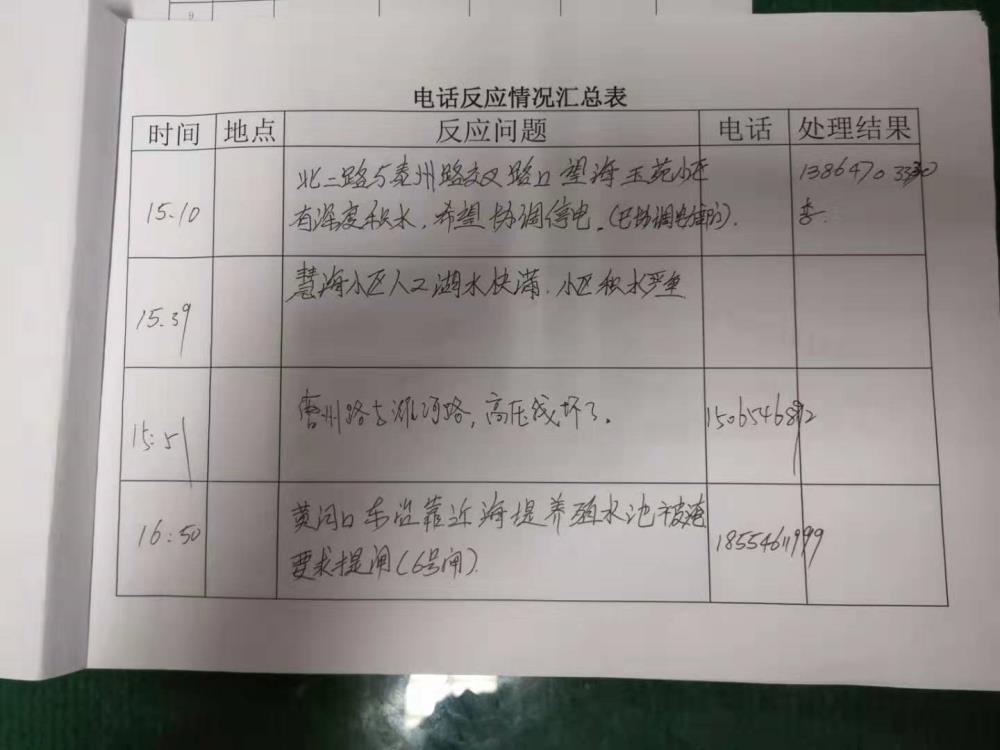 9
电话反应情况汇总表
时间 地点 反应问题 电话 处理结果
15.10 北二路与 州路交叉路口望海玉苑小区 13864703330
有深度积水，希望协调停电。(已协调电 部门). 李.
15.39 慧海小区人工湖水快满.小区积水严重
15:51 州路与潍河路，高压线坏了。 15065468 2
16:50 黄河口东 靠近海堤养殖水池被淹 18554611999
要求提闸(6号闸).